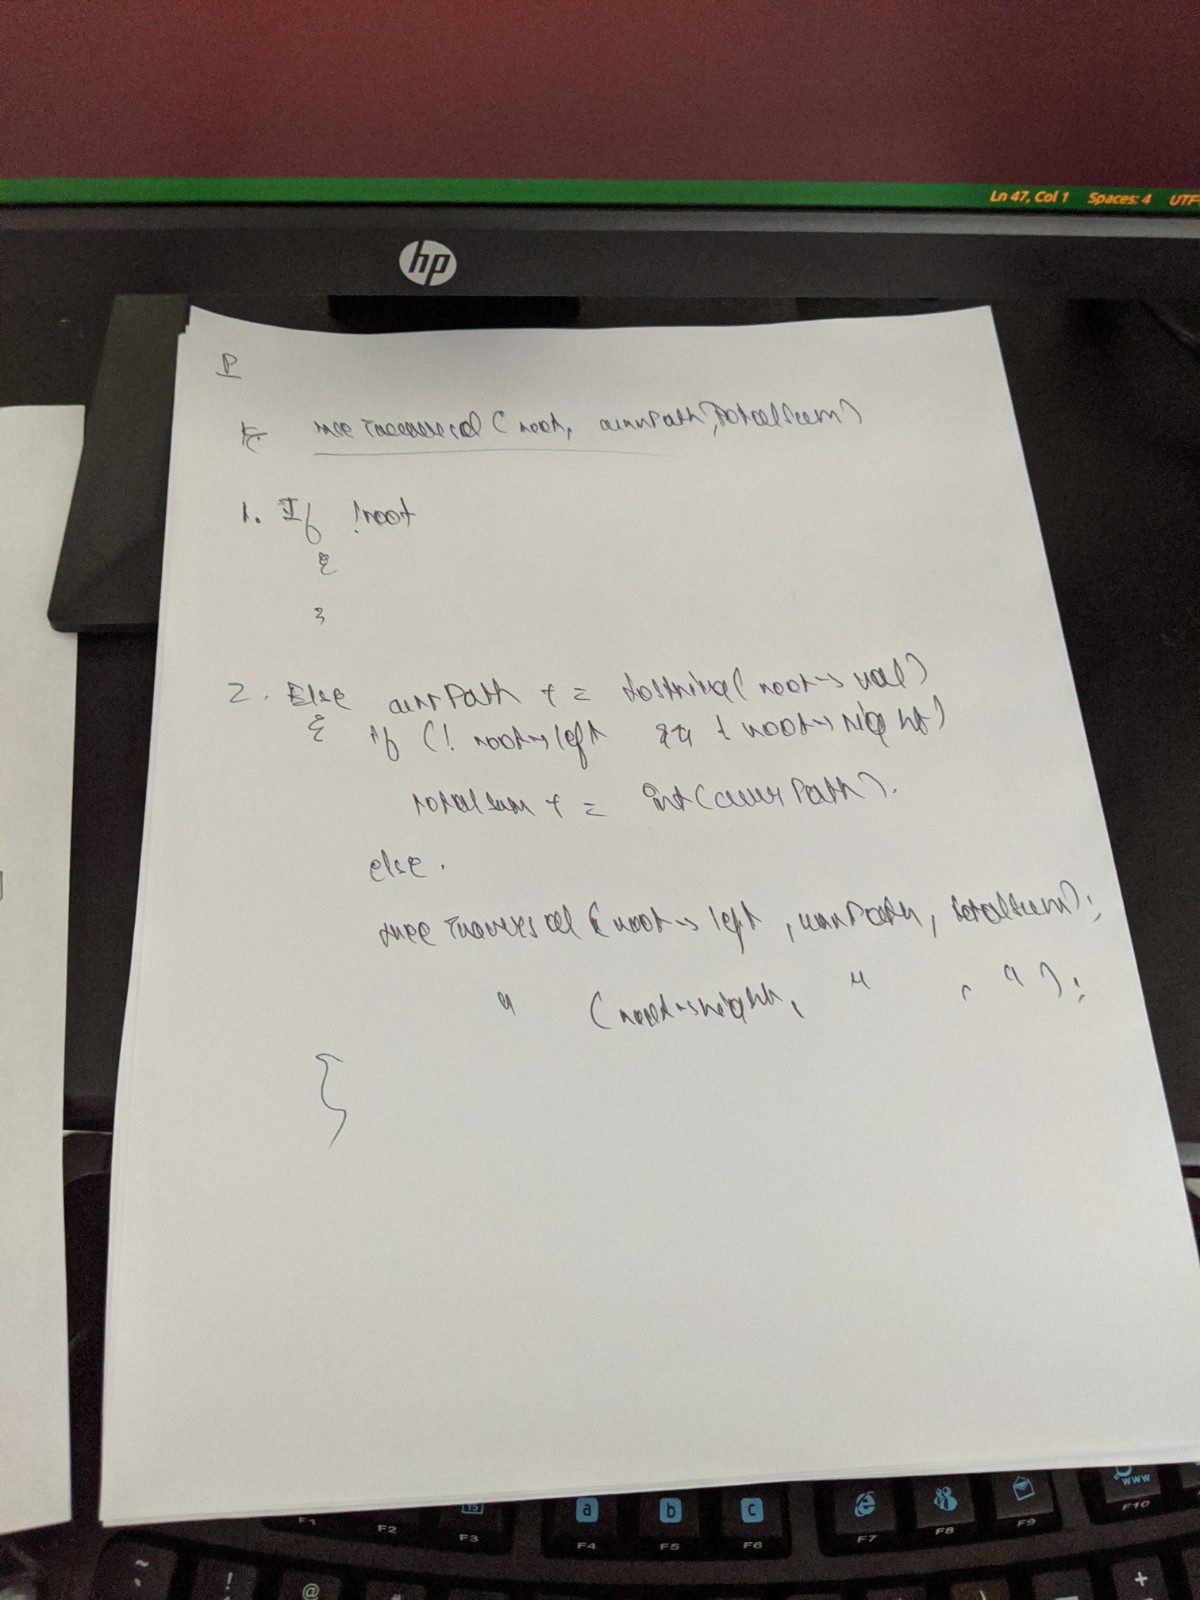 Ln 47, Col 1 Spaces: 4 UTF
hp
P
treeTraversal (root, currPath, totalSum)
1. If !root
{
}
2. Else currPath += toString(root->val)
{ if (! root->left && ! root->right)
totalsum += int(currPath).
else.
treeTraversal (root->left, currPath, totalsum);
" (root->right, " , " );
}
a b c
www
F1 F2 F3 F4 F5 F6 F7 F8 F9 F10
~ ! @ # ) +